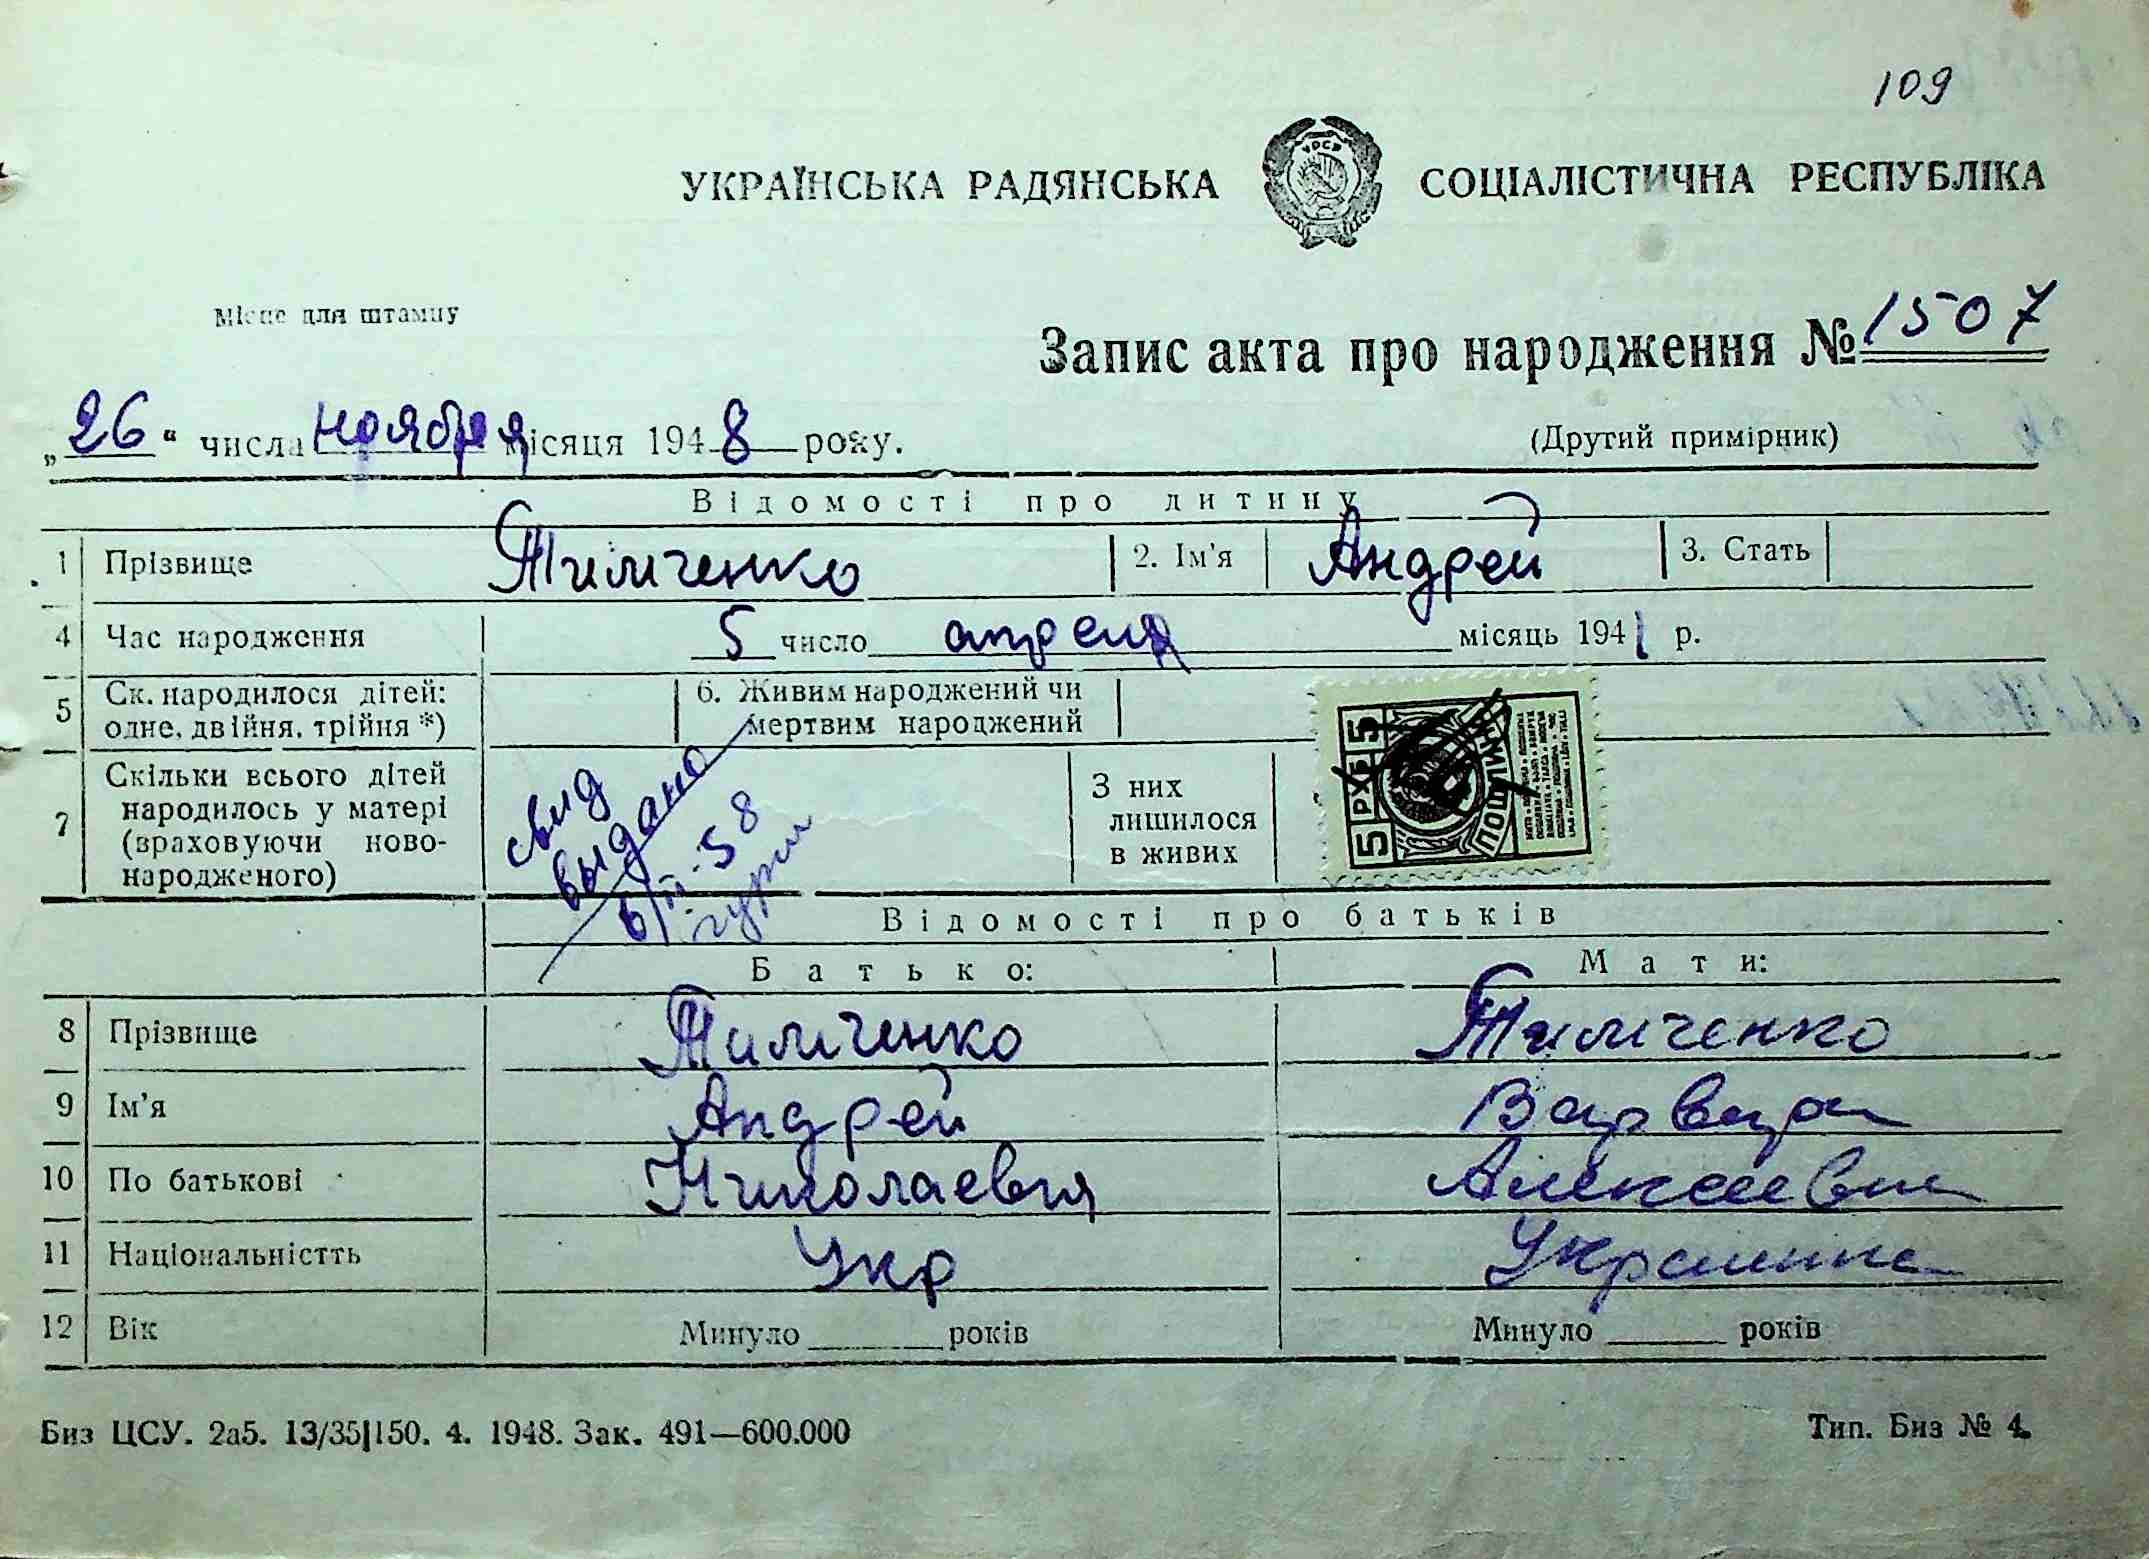 109
УКРАЇНСЬКА РАДЯНСЬКА СОЦІАЛІСТИЧНА РЕСПУБЛІКА
Місце для штампу
Запис акта про народження № 1507
„26“ числа ноября місяця 1948 року.
(Другий примірник)
Відомості про дитину
1 Прізвище Тимченко 2. Ім'я Андрей 3. Стать
4 Час народження 5 число апреля місяць 1941 р.
5 Ск. народилося дітей: одне, двійня, трійня *) 6. Живим народжений чи мертвим народжений
7 Скільки всього дітей народилось у матері (враховуючи ново-народженого) З них лишилося в живих
свид
выдано
6/III-58
5 РУБ 5
ПОШЛИНА
Відомості про батьків
Батько: Мати:
8 Прізвище Тимченко Тимченко
9 Ім'я Андрей Варвара
10 По батькові Николаевич Алексеевна
11 Національністть Укр Украинка
12 Вік Минуло ______ років Минуло ______ років
Биз ЦСУ. 2а5. 13/35|150. 4. 1948. Зак. 491—600.000 Тип. Биз № 4.